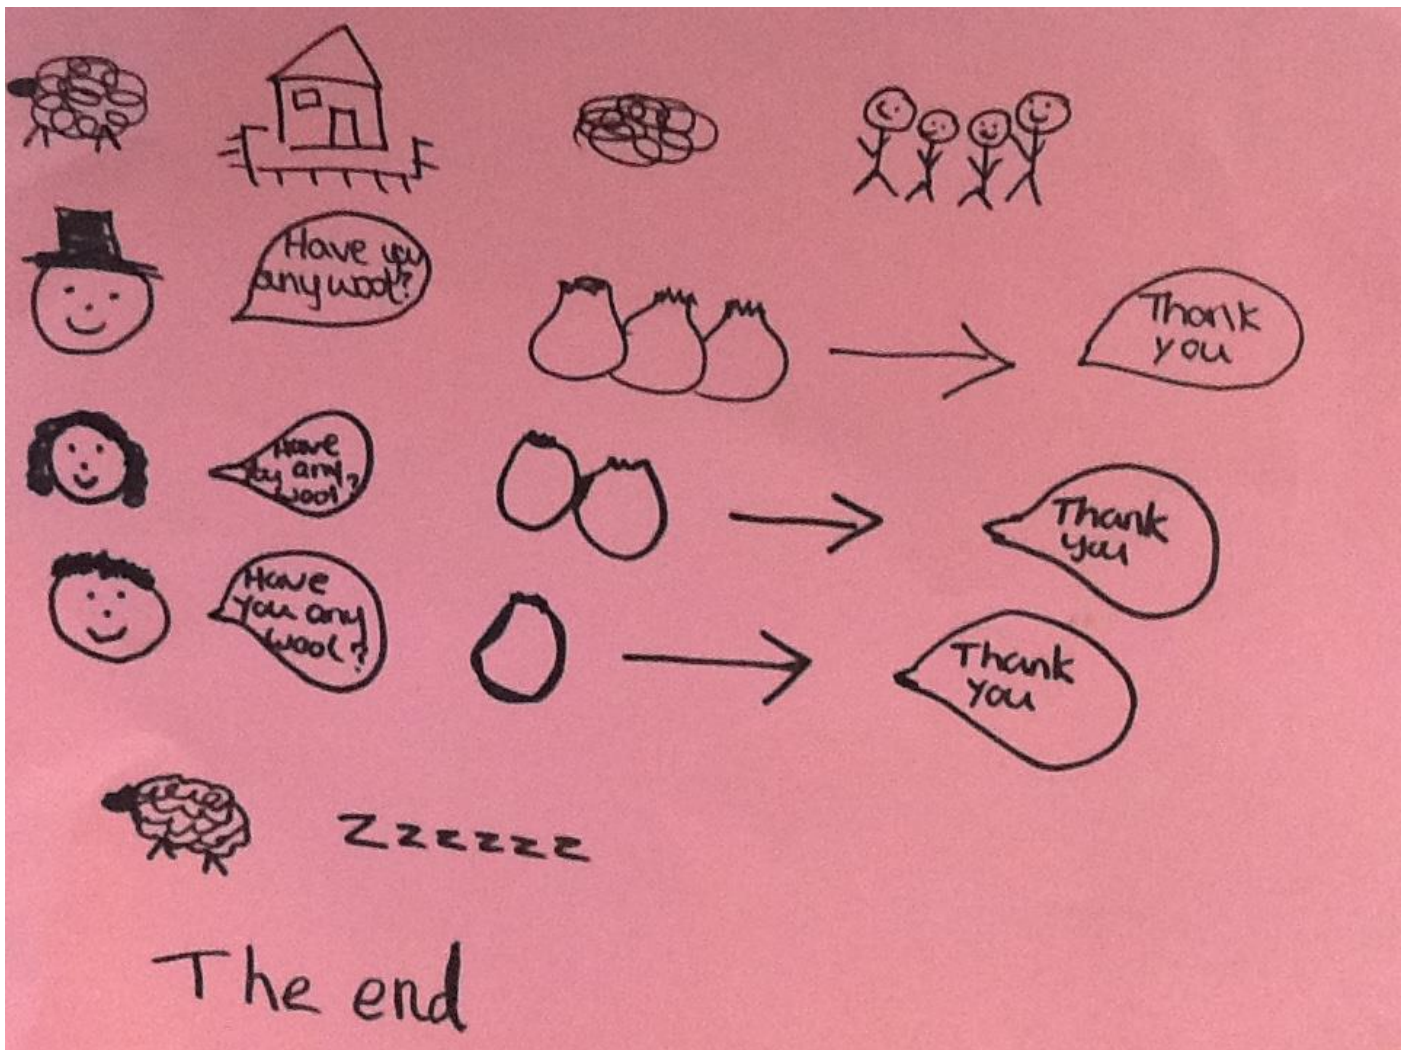 Have you
any wool?
Thank
you
Have
any
wool?
Thank
you
Have
you any
wool?
Thank
you
Zzzzzz
The end